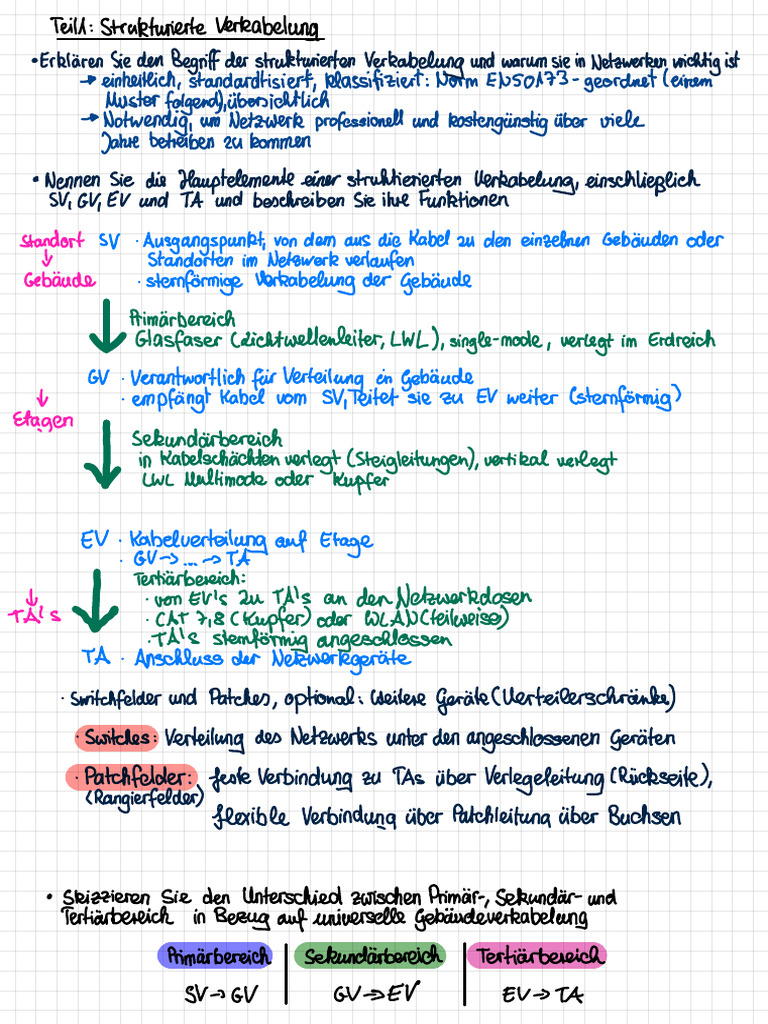 Teil 1: Strukturierte Verkabelung
• Erklären Sie den Begriff der strukturierten Verkabelung und warum sie in Netzwerken wichtig ist
→ einheitlich, standardtisiert, klassifiziert: Norm EN50173 - geordnet (einem
Muster folgend), übersichtlich
→ Notwendig, um Netzwerk professionell und kostengünstig über viele
Jahre betreiben zu kommen
• Nennen Sie die Hauptelemente einer struktierierten Verkabelung, einschließlich
SV, GV, EV und TA und beschreiben Sie ihre Funktionen
Standort SV · Ausgangspunkt, von dem aus die Kabel zu den einzelnen Gebäuden oder
↓ Standorten im Netzwerk verlaufen
Gebäude · sternförmige Verkabelung der Gebäude
Primärbereich
Glasfaser (Lichtwellenleiter, LWL), single-mode, verlegt im Erdreich
GV · Verantwortlich für Verteilung in Gebäude
↓ · empfängt Kabel vom SV, leitet sie zu EV weiter (sternförmig)
Etagen
Sekundärbereich
in Kabelschächten verlegt (Steigleitungen), vertikal verlegt
LWL Multimode oder Kupfer
EV · Kabelverteilung auf Etage
· GV → ... → TA
Tertiärbereich:
↓ · von EV's zu TA's an den Netzwerkdosen
TA's · CAT 7,8 (Kupfer) oder WLAN (teilweise)
· TA's sternförmig angeschlossen
TA · Anschluss der Netzwerkgeräte
· Switchfelder und Patches, optional: weitere Geräte (Verteilerschränke)
· Switches: Verteilung des Netzwerks unter den angeschlossenen Geräten
· Patchfelder: feste Verbindung zu TAs über Verlegeleitung (Rückseite),
(Rangierfelder)
flexible Verbindung über Patchleitung über Buchsen
• Skizzieren Sie den Unterschied zwischen Primär-, Sekundär- und
Tertiärbereich in Bezug auf universelle Gebäudeverkabelung
Primärbereich | Sekundärbereich | Tertiärbereich
SV → GV | GV → EV | EV → TA